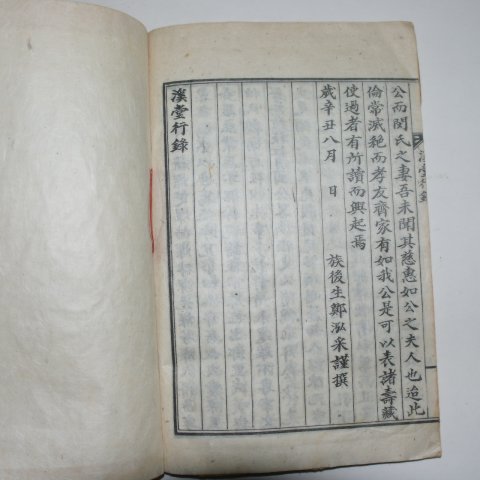 溪堂行錄
公而閔氏之妻吾未聞其慈惠如公之夫人也迨此
倫常滅絶而孝友齊家有如我公是可以表諸壽藏
使過者有所讀而興起焉
歲辛丑八月　日　　　族後生鄭泓采謹撰
溪堂行錄